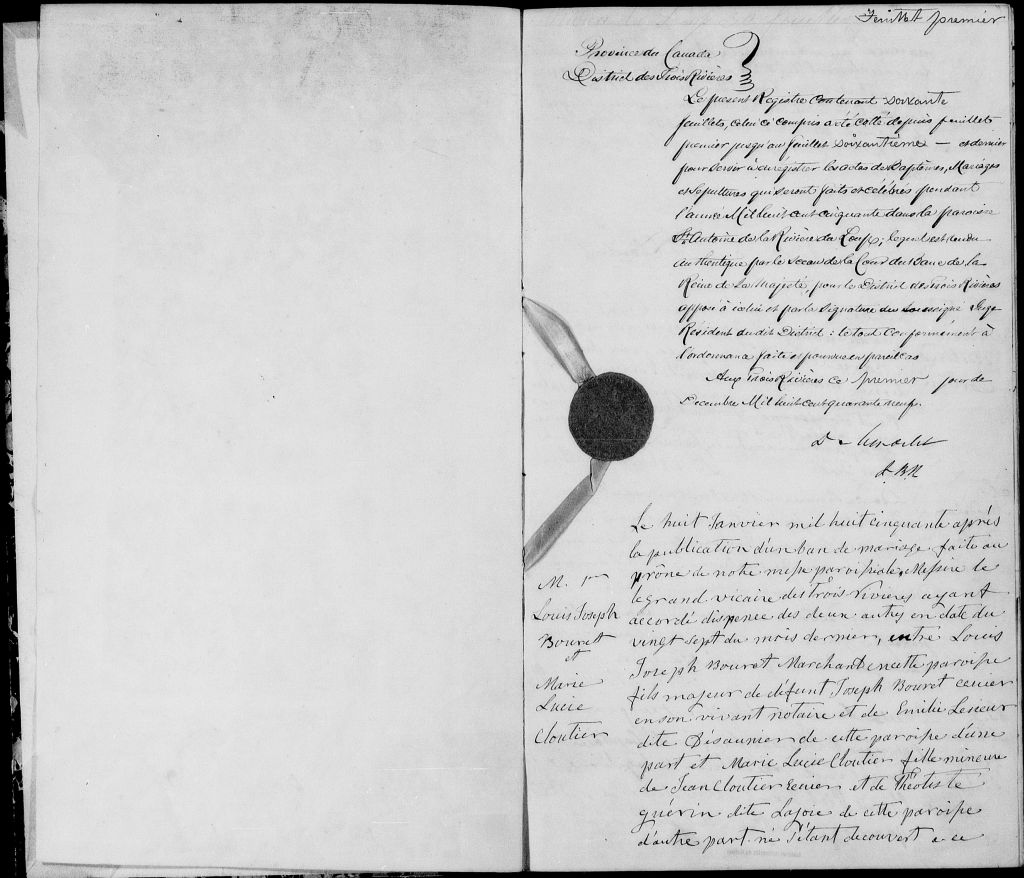 Feuillet premier
Province du Canada
District des Trois Rivières
Le présent Registre contenant soixante
feuillets, celui ci compris a été cotté depuis feuillets
premier jusqu'au feuillet soixantième — et dernier
pour servir à enrégistrer les actes de Baptêmes, Mariages
et Sépultures qui seront faits et célébrés pendant
l'année Mil huit cent cinquante dans la paroisse
St. Antoine de la Rivière du Loup; lequel est rendu
authentique par le Sceau de la Cour du Banc de la
Reine de Sa Majesté, pour le District des Trois Rivières
apposé à icelui et par la Signature du Soussigné Juge
Résident du dit District: le tout conformément à
l'ordonnance faite et pourvue en pareil cas
Aux Trois Rivières ce premier jour de
Décembre Mil huit cent quarante neuf.
M. 1er
Louis Joseph
Bouret
et
Marie
Lucie
Cloutier
Le huit Janvier mil huit cinquante après
la publication d'un ban de mariage faite au
prône de notre messe paroissiale, Messire le
le grand vicaire des trois rivières ayant
accordé dispence des deux autres en date du
vingt sept du mois dernier, entre Louis
Joseph Bouret Marchand en cette paroisse
fils majeur de défunt Joseph Bouret ecuier
en son vivant notaire et de Emilie Lesieur
dite Désaunier de cette paroisse d'une
part et Marie Lucie Cloutier fille mineure
de Jean Cloutier Ecuier et de Théotiste
guérin dite Lajoie de cette paroisse
d'autre part né s'étant decouvert a ce